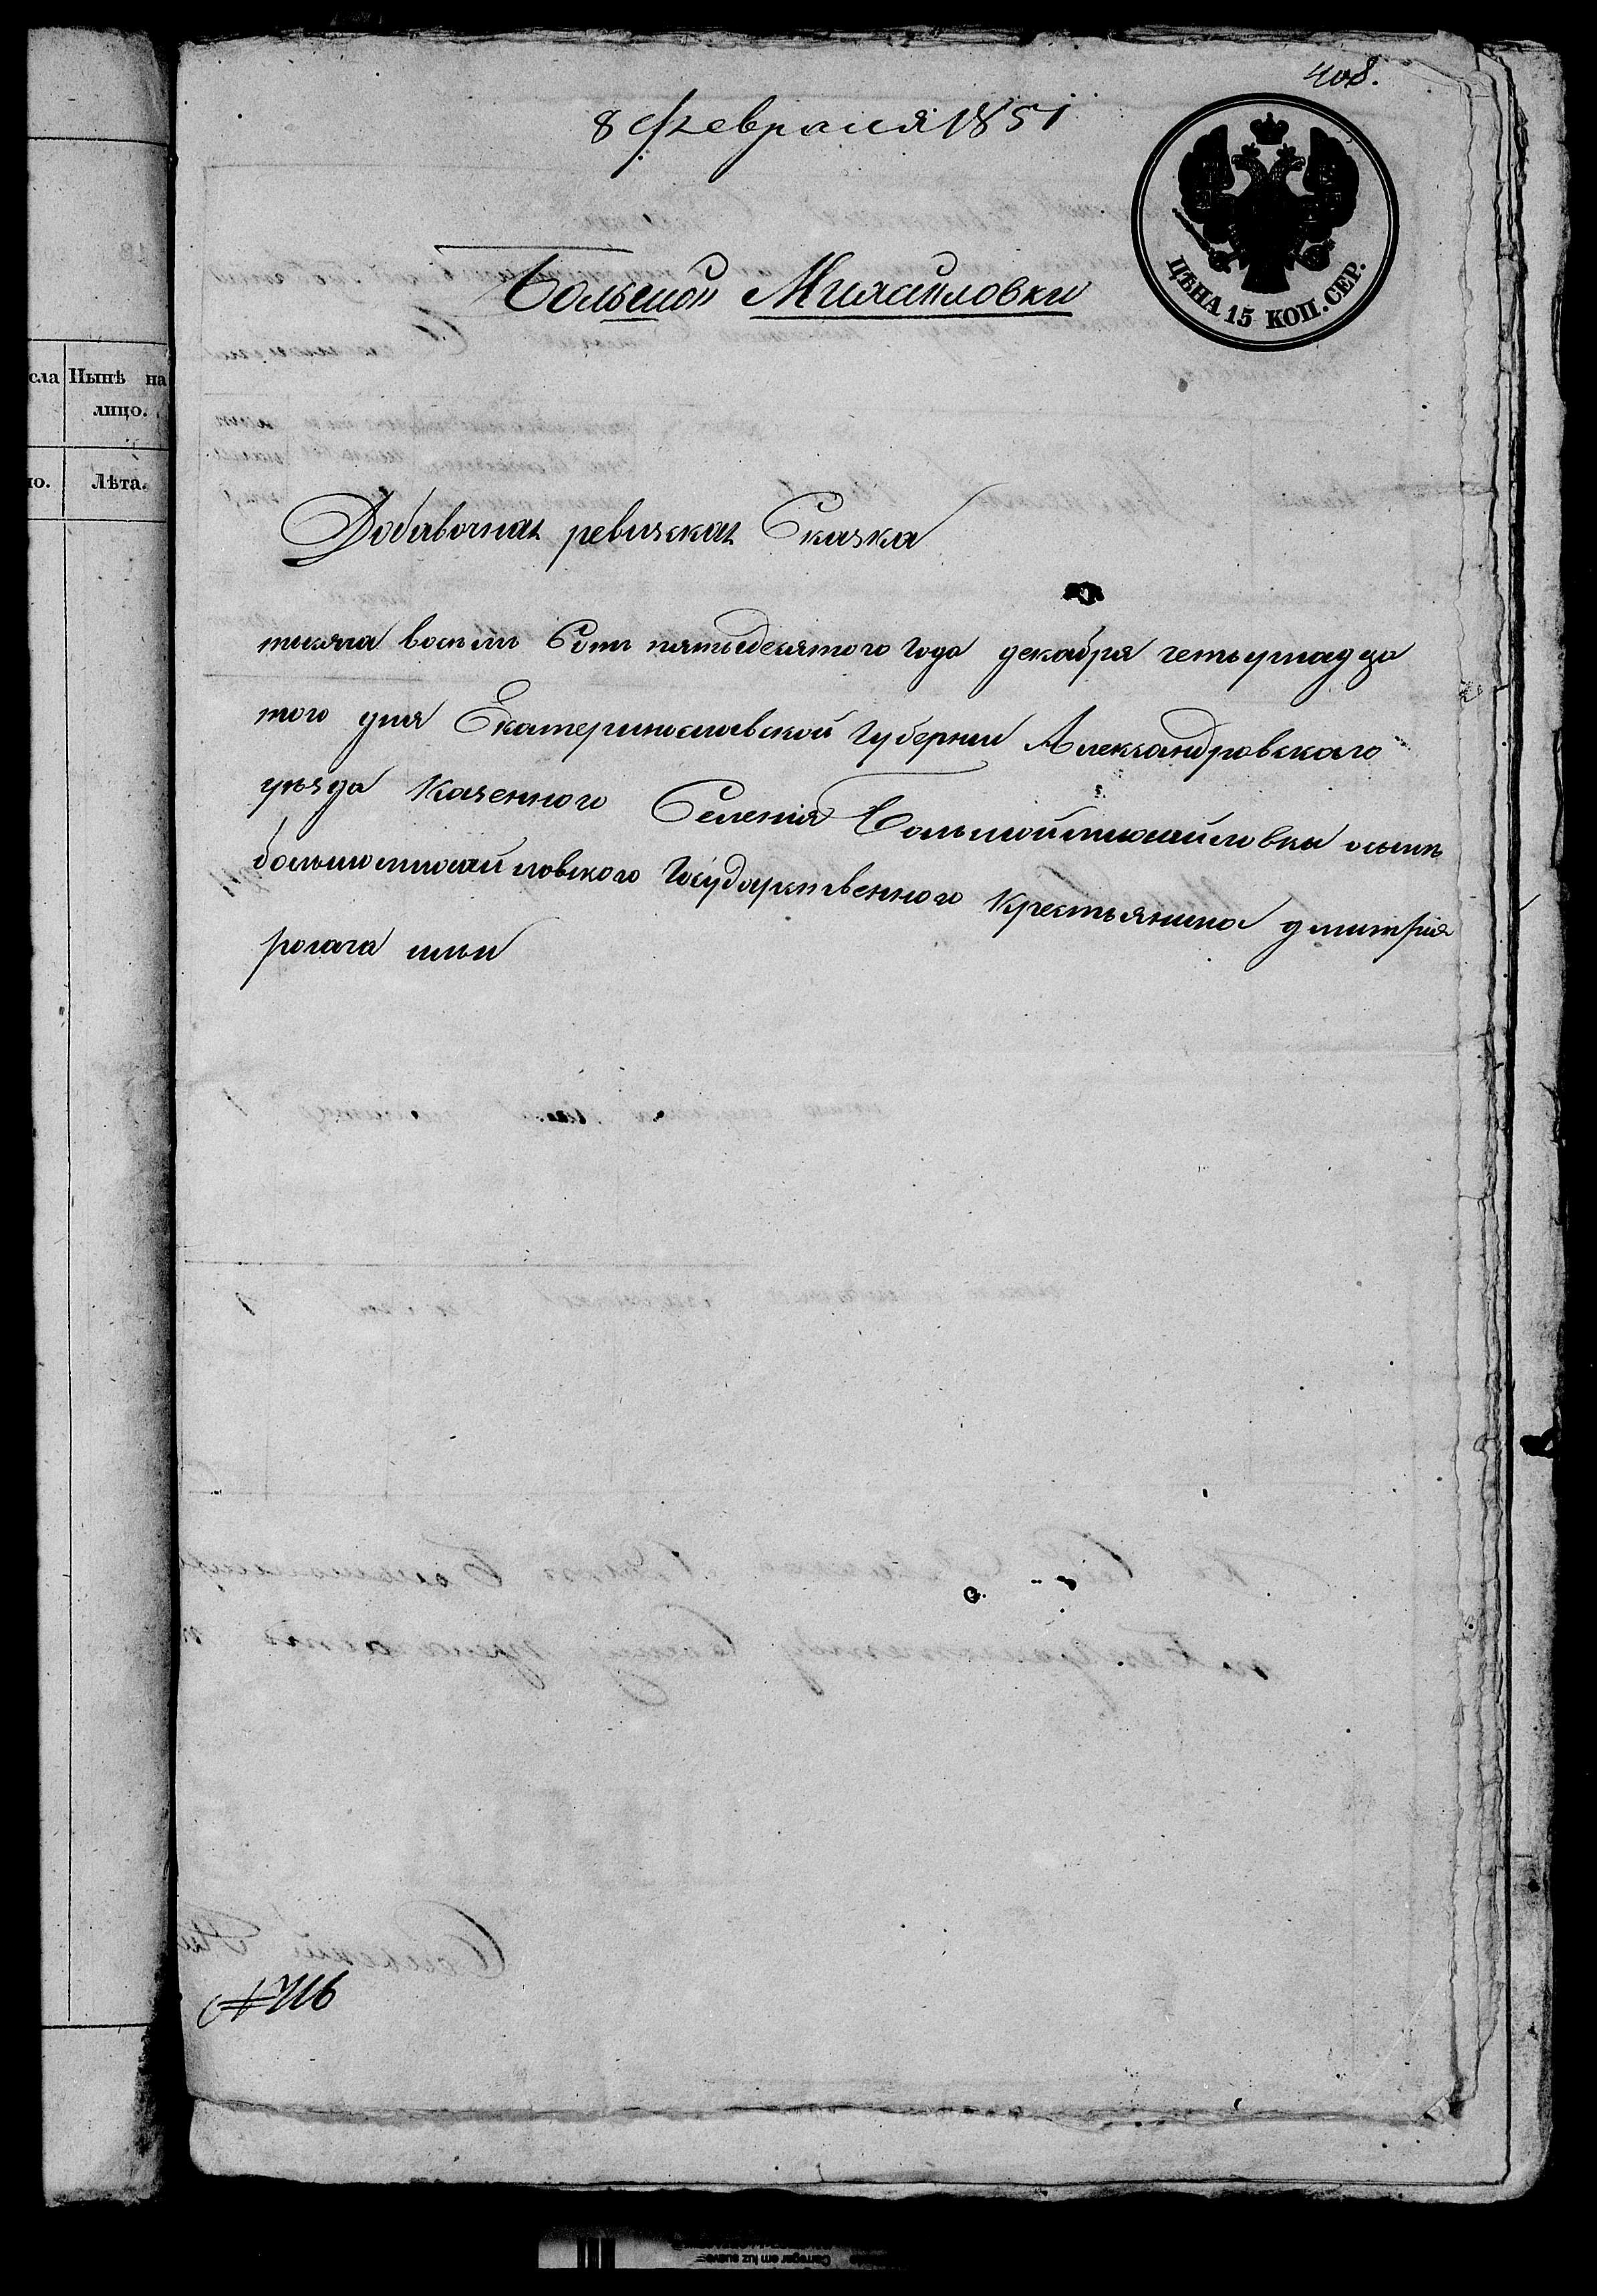 408.
8 февраля 1851
ЦѢНА 15 КОП. СЕР.
Большой Михайловки
сла Нынѣ на
лицо.
ло. Лѣта.
Добавочная ревизская Сказка
тысяча восемь Сотъ пятьдесятого года декабря четырнадца
того дня Екатеринославской Губернии Александровского
уѣзда Казенного Селения Большоймихайловки
большемихайловского Государственного Крестьянина дмитрия
рогача
№ 716